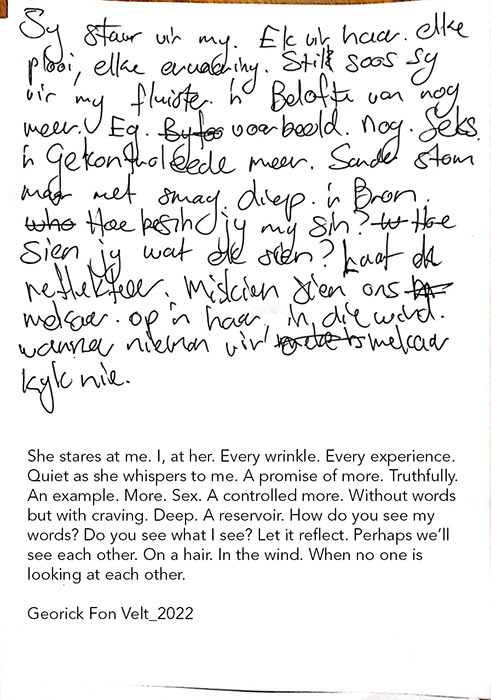 Sy staar vir my. Ek vir haar. elke
plooi, elke ervaring. Stil soos sy
vir my fluister. 'n Belofte van nog
meer. Eg. voorbeeld. Nog. Seks.
'n Gekontroleerde meer. Sonder stem
maar met smag. diep. 'n Bron.
Hoe besin jy my sin? Hoe
Sien jy wat ek sien? Laat dit
reflekteer. Miskien sien ons
mekaar. op 'n haar. in die wind.
wanneer nieman vir mekaar
kyk nie.
She stares at me. I, at her. Every wrinkle. Every experience.
Quiet as she whispers to me. A promise of more. Truthfully.
An example. More. Sex. A controlled more. Without words
but with craving. Deep. A reservoir. How do you see my
words? Do you see what I see? Let it reflect. Perhaps we'll
see each other. On a hair. In the wind. When no one is
looking at each other.
Georick Fon Velt_2022